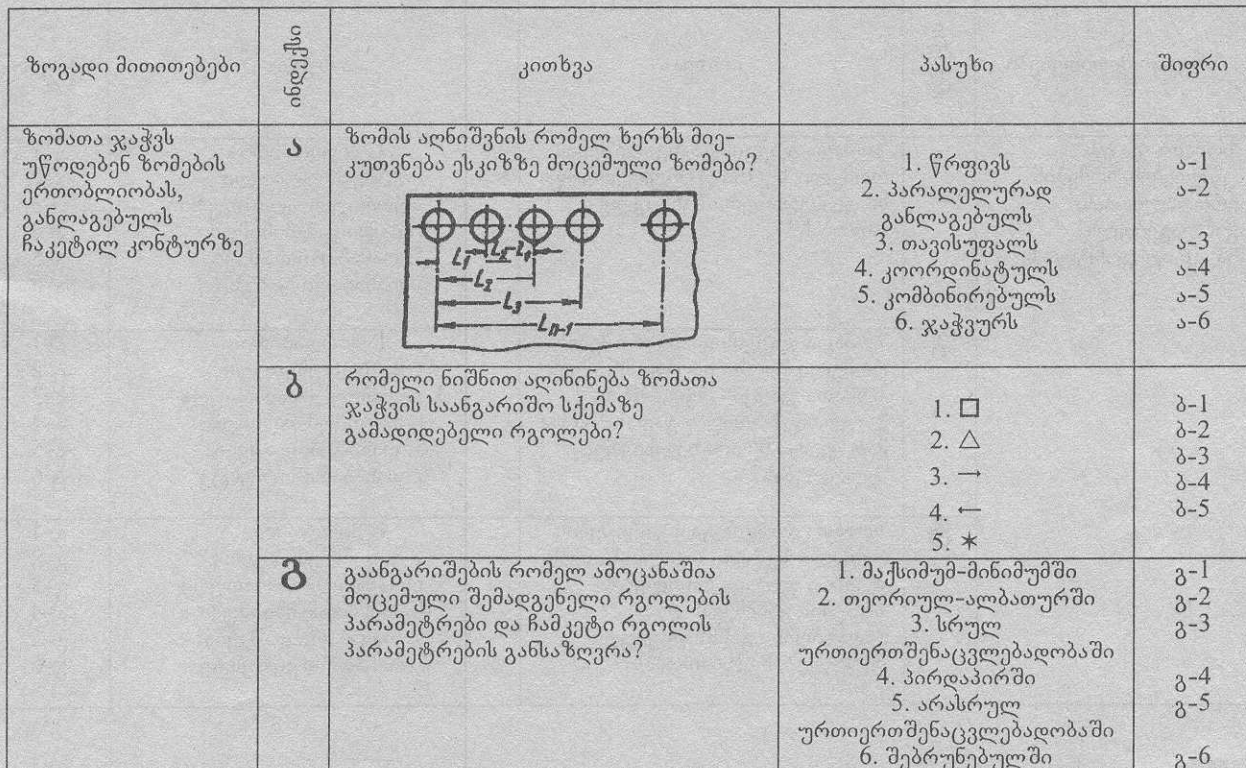 ზოგადი მითითებები
ინდექსი
კითხვა
პასუხი
შიფრი
ზომათა ჯაჭვს
უწოდებენ ზომების
ერთობლიობას,
განლაგებულს
ჩაკეტილ კონტურზე
ა
ზომის აღნიშვნის რომელ ხერხს მიე-
კუთვნება ესკიზზე მოცემული ზომები?
L₁ L₂-L₁
L₂
L₃
Lₙ₋₁
1. წრფივს ა-1
2. პარალელურად ა-2
განლაგებულს
3. თავისუფალს ა-3
4. კოორდინატულს ა-4
5. კომბინირებულს ა-5
6. ჯაჭვურს ა-6
ბ
რომელი ნიშნით აღინინება ზომათა
ჯაჭვის საანგარიშო სქემაზე
გამადიდებელი რგოლები?
1. □ ბ-1
2. △ ბ-2
3. → ბ-3
4. ← ბ-4
5. ✶ ბ-5
გ
გაანგარიშების რომელ ამოცანაშია
მოცემული შემადგენელი რგოლების
პარამეტრები და ჩამკეტი რგოლის
პარამეტრების განსაზღვრა?
1. მაქსიმუმ-მინიმუმში გ-1
2. თეორიულ-ალბათურში გ-2
3. სრულ გ-3
ურთიერთშენაცვლებადობაში
4. პირდაპირში გ-4
5. არასრულ გ-5
ურთიერთშენაცვლებადობაში
6. შებრუნებულში გ-6